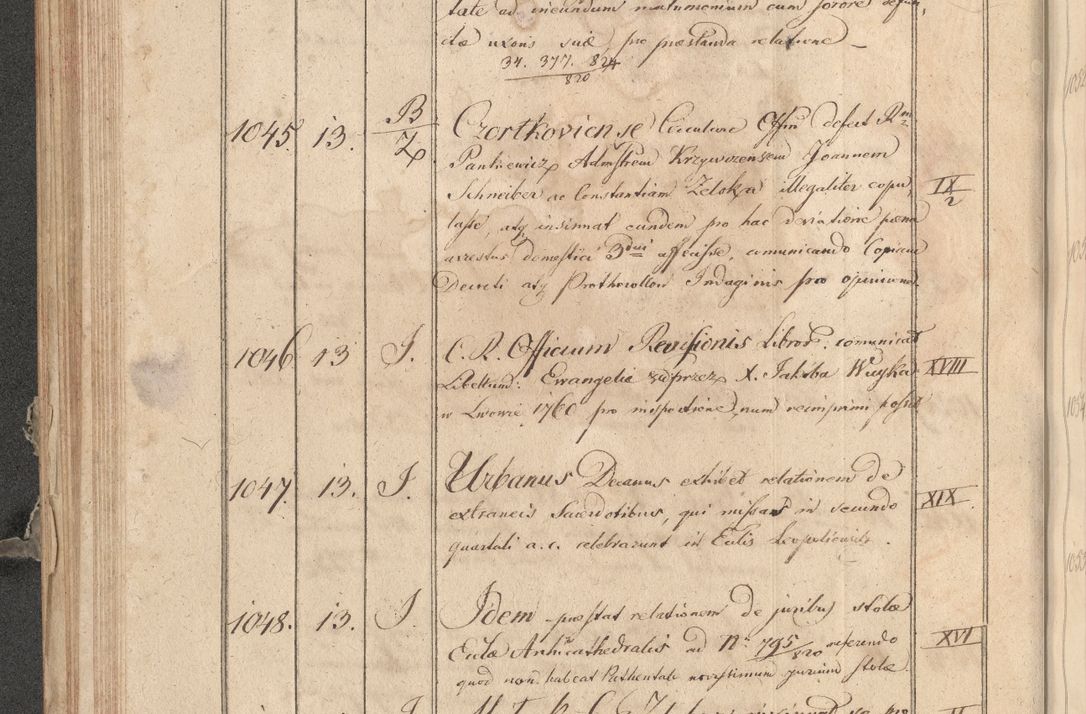 tate ad ineundum matrimonium cum sorore defun,
ctæ uxoris suæ, pro præstanda relatione —
34. 377. 824
820
1045. 13. B/Z Czortkoviense Circulare Offm defert Rm
Pankiewicz Admstrem Krzyworensem Joannem
Schneiber ac Constantiam Zeloka illegaliter copu, IX/2
lasse, atq insinuat eundem pro hac deviatione pæna
arrestus domestici 3dui affecisse, comunicando Copiam
Decreti atq Prothocollon Indaginis pro opinione.
1046. 13 I. C. R. Officium Revisionis Libror. comunicat
Libellum: Ewangelie przez X. Jakóba Wuyka XVIII
w Lwowie 1760 pro inspectione, num reimprimi possit
1047. 13. I. Urbanus Decanus exhibet relationem de
extraneis Sacerdotibus, qui missas in secundo XIX
quartali a. c. celebrarunt in Eccliis Leopoliensib.
1048. 13. I. Idem præstat relationem de juribus stolæ
Eccliæ Archicathedralis ad No 795/820 referendo XVI
quod non habeat Ruthenicale novissimum jurium stolæ.